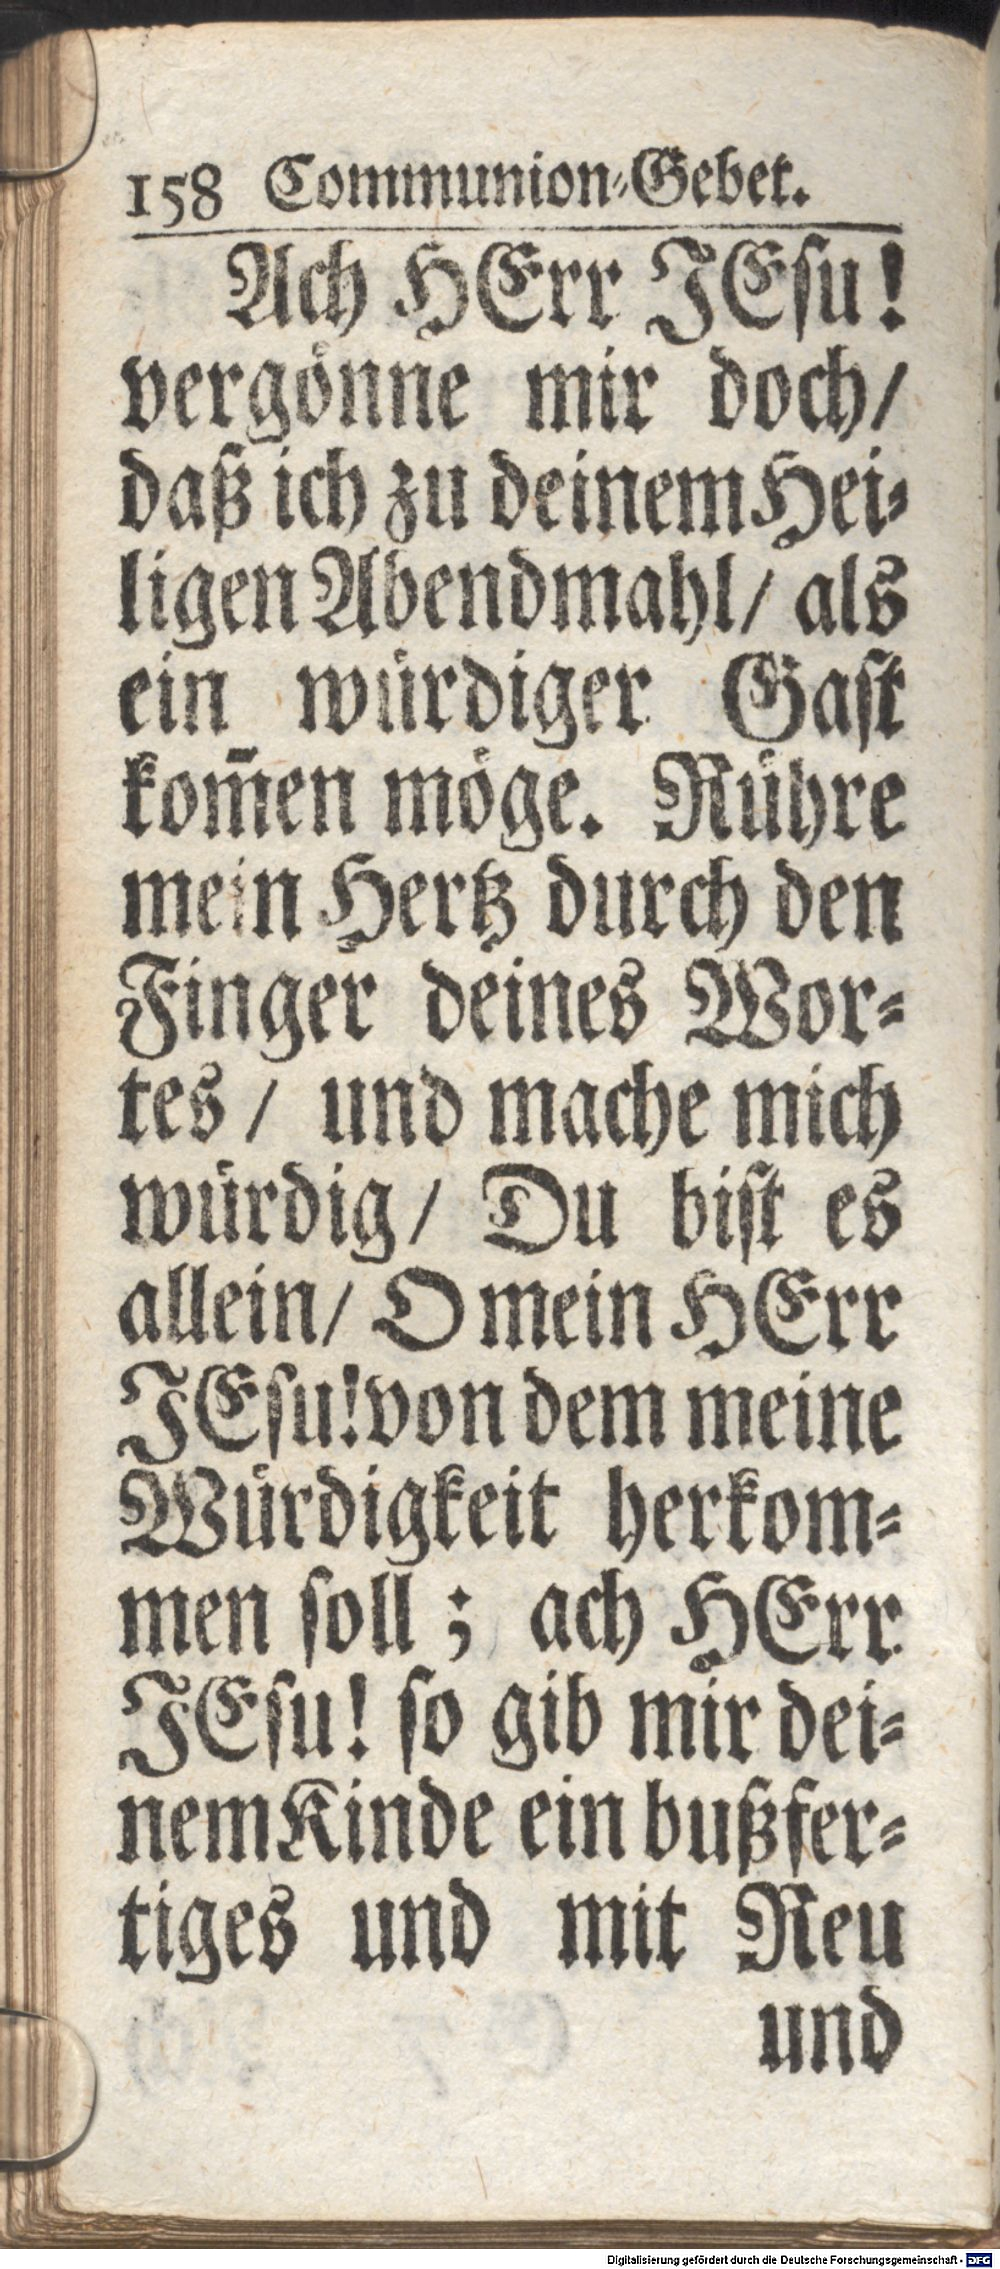 158 Communion-Gebet.
Ach HErr JEsu!
vergönne mir doch/
daß ich zu deinem Hei-
ligen Abendmahl/ als
ein würdiger Gast
kom̃en möge. Rühre
mein Hertz durch den
Finger deines Wor-
tes / und mache mich
würdig/ Du bist es
allein/ O mein HErr
JEsu! von dem meine
Würdigkeit herkom-
men soll ; ach HErr
JEsu! so gib mir dei-
nem Kinde ein bußfer-
tiges und mit Reu
und
Digitalisierung gefördert durch die Deutsche Forschungsgemeinschaft - DFG